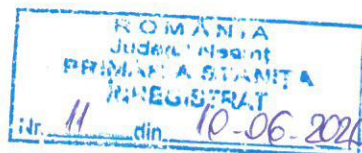 ROMÂNIA
Județul Neamț
PRIMĂRIA STĂNIȚA
ÎNREGISTRAT
Nr. 11 din 10-06-202